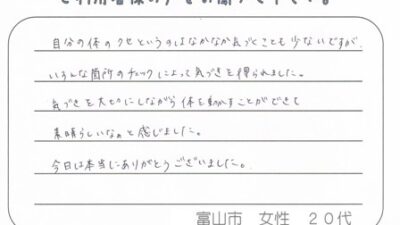 自分の体のクセというのはなかなか気づくことも少ないですが、
いろんな箇所のチェックによって気づきを得られました。
気づきを大切にしながら体を動かすことができて
素晴らしいなぁと感じました。
今日は本当にありがとうございました。
富山市 女性 20代